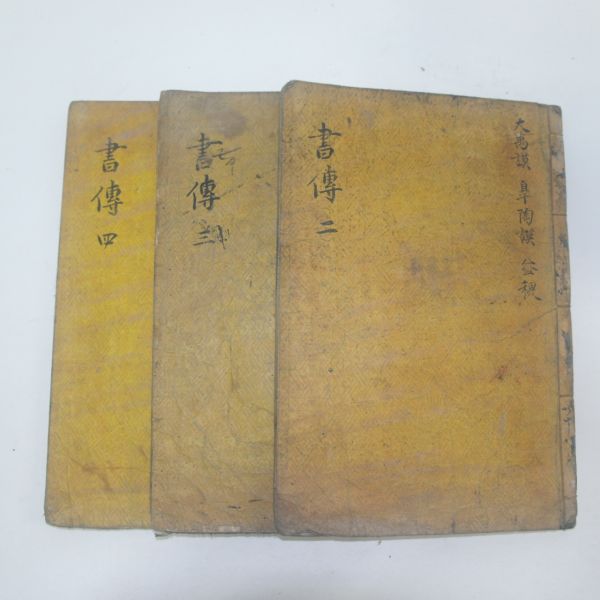 書傳 二
大禹謨 臯陶謨 益稷
書傳 三
書傳 四